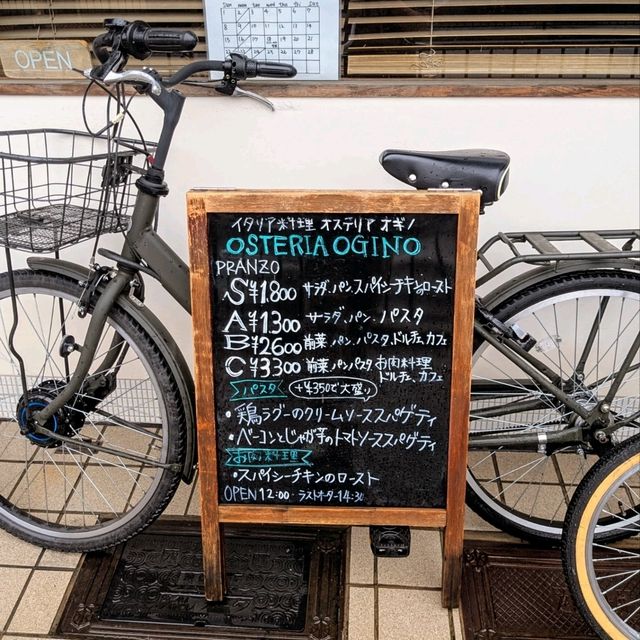 OPEN
Sun mon tue wed Thu Fri Sat
イタリア料理 オステリア オギノ
OSTERIA OGINO
PRANZO
S ¥1.800 サラダ、パン、スパイシーチキンのロースト
A ¥1.300 サラダ、パン、パスタ
B ¥2600 前菜、パン、パスタ、ドルチェ、カフェ
C ¥3300 前菜、パン、パスタ、お肉料理
ドルチェ、カフェ
パスタ (+¥350で大盛り)
・鶏ラグーのクリームソーススパゲティ
・ベーコンとじゃが芋のトマトソーススパゲティ
お肉料理
・スパイシーチキンのロースト
OPEN 12:00 - ラストオーダー 14:30